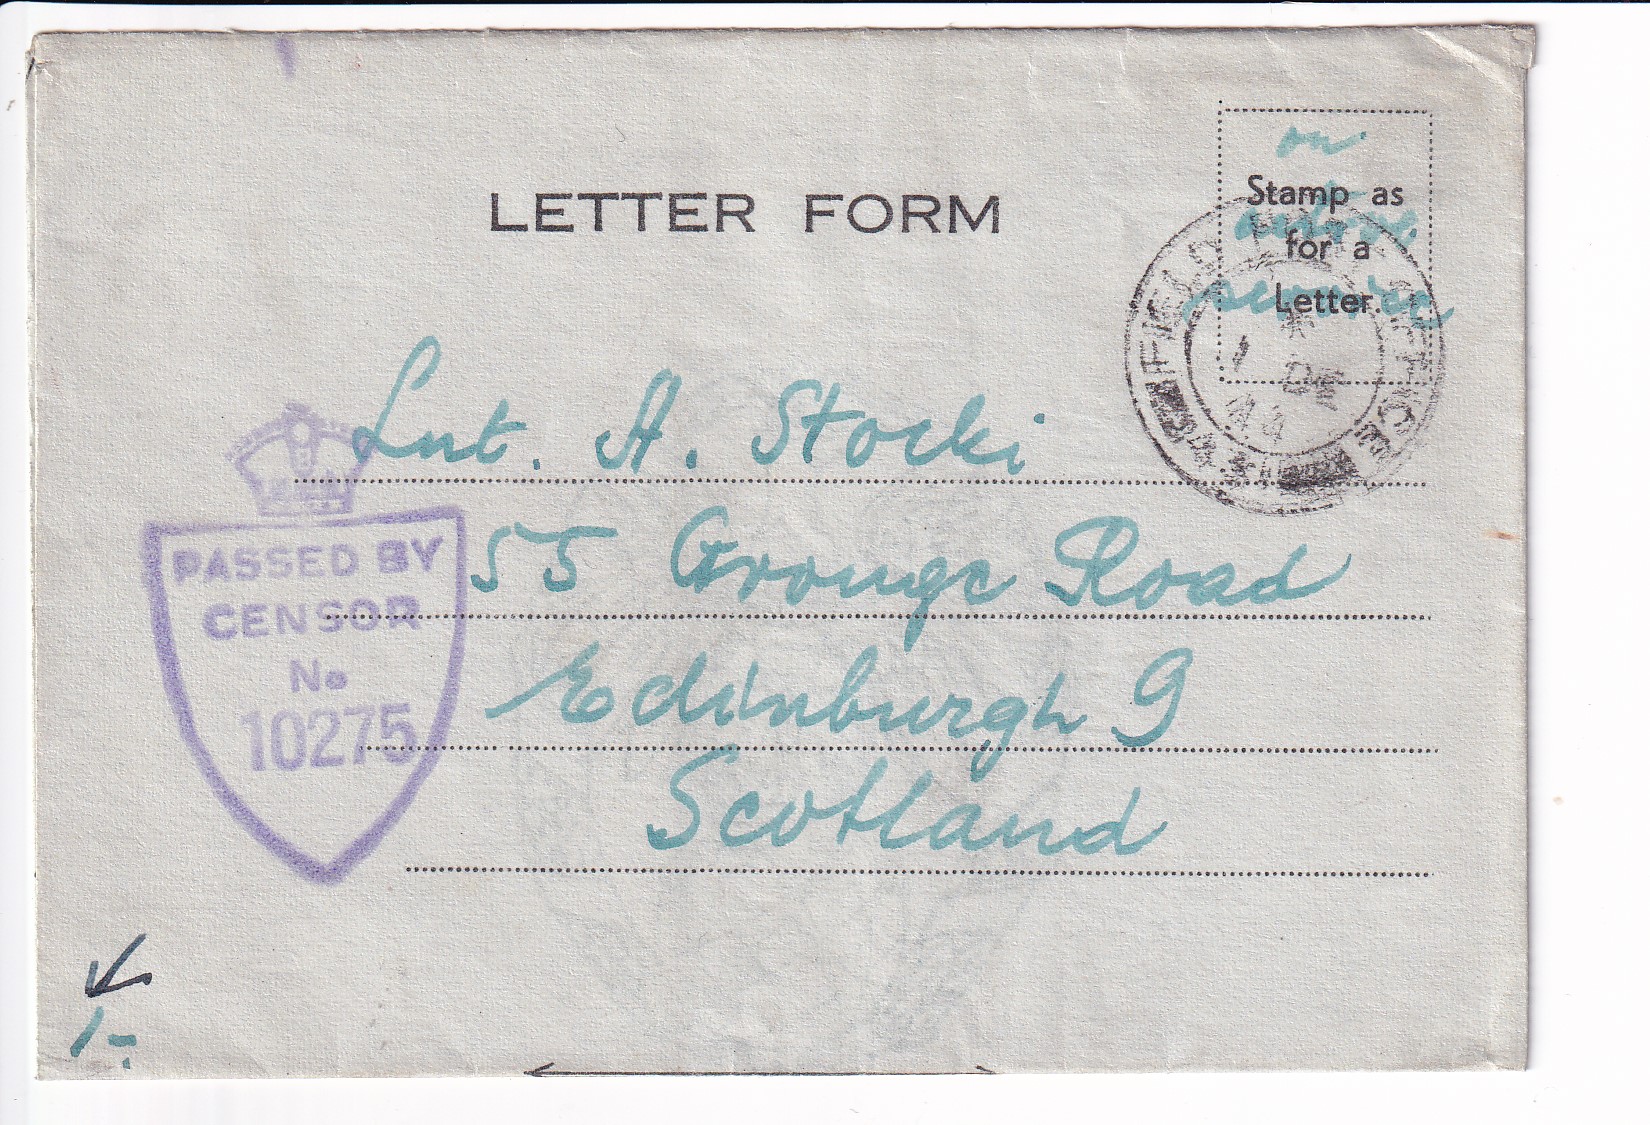 LETTER FORM
on
Stamp as
active
for a
service
Letter.
FIELD POST OFFICE
1 DE
44
Lnt. A. Stocki
55 Grange Road
Edinburgh 9
Scotland
PASSED BY
CENSOR
No
10275
1-